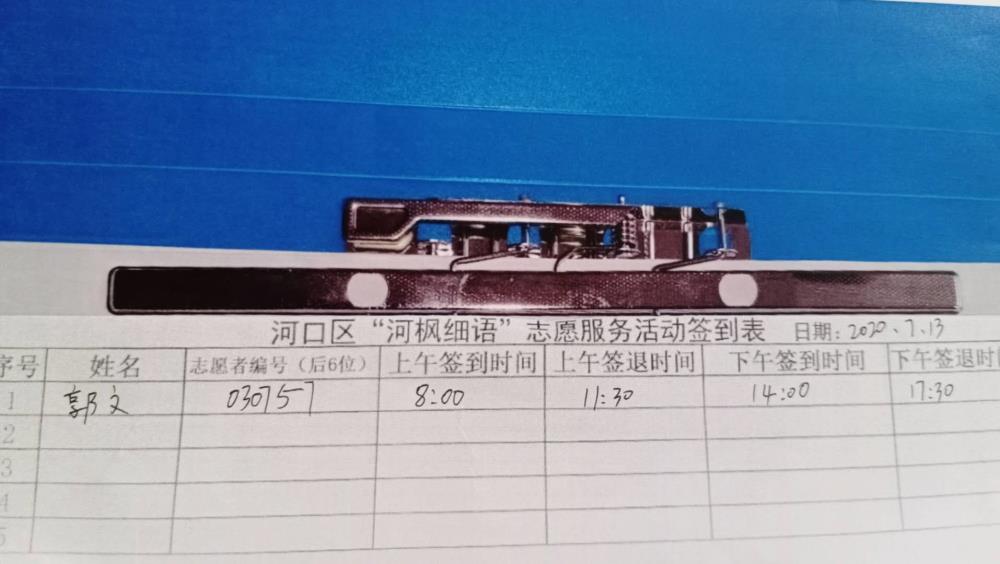 河口区“河枫细语”志愿服务活动签到表 日期：2020、7.13
序号 姓名 志愿者编号（后6位） 上午签到时间 上午签退时间 下午签到时间 下午签退时间
1 郭文 030757 8:00 11:30 14:00 17:30
2
3
4
5